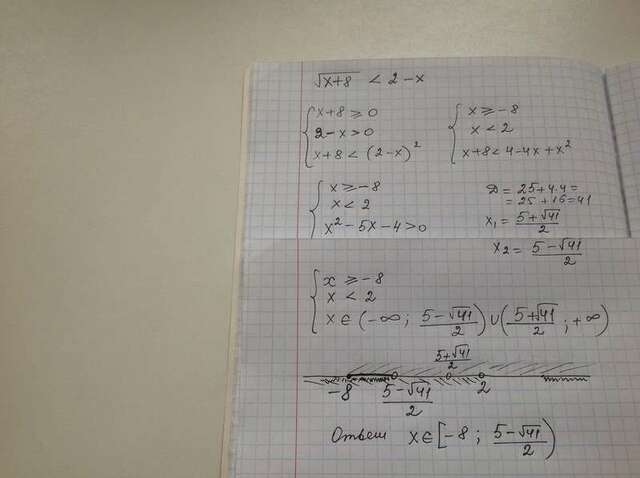 √x+8 < 2-x
{ x+8 ≥ 0
2-x > 0
x+8 < (2-x)²
{ x ≥ -8
x < 2
x+8 < 4-4x+x²
{ x ≥ -8
x < 2
x²-5x-4>0
D = 25+4·4=
= 25+16=41
x₁ = (5+√41)/2
x₂ = (5-√41)/2
{ x ≥ -8
x < 2
x ∈ (-∞ ; (5-√41)/2) ∪ ((5+√41)/2 ; +∞)
(5+√41)/2
-8 (5-√41)/2 2
Ответ x ∈ [-8 ; (5-√41)/2)